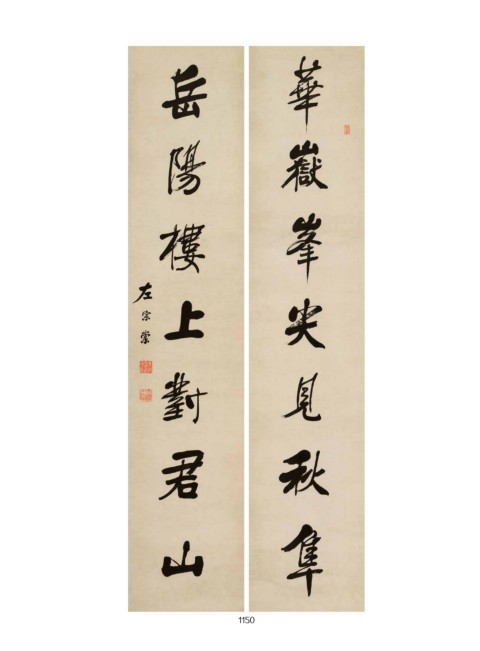 華嶽峯尖見秋隼
岳陽樓上對君山
左宗棠
1150